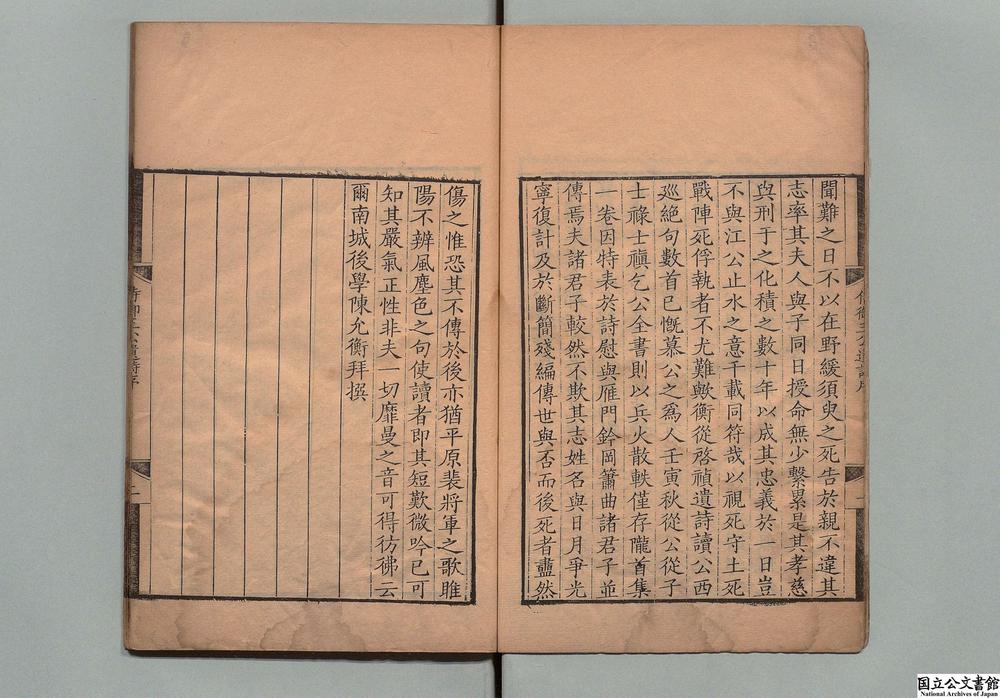 聞難之日不以在野緩須臾之死告於親不違其
志率其夫人與子同日授命無少繫累是其孝慈
與刑于之化積之數十年以成其忠義於一日豈
不與江公止水之意千載同符哉以視死守土死
戰陣死俘執者不尤難歟衡從啓禎遺詩讀公西
巡絕句數首已慨慕公之爲人壬寅秋從公從子
士祿士禛乞公全書則以兵火散軼僅存隴首集
一卷因特表於詩慰與雁門鈐岡簫曲諸君子並
傳焉夫諸君子較然不欺其志姓名與日月爭光
寧復計及於斷簡殘編傳世與否而後死者盡然
傷之惟恐其不傳於後亦猶平原裴將軍之歌睢
陽不辨風塵色之句使讀者即其短歎微吟已可
知其嚴氣正性非夫一切靡曼之音可得彷彿云
爾南城後學陳允衡拜撰
侍御王公遺詩序
二
国立公文書館
National Archives of Japan